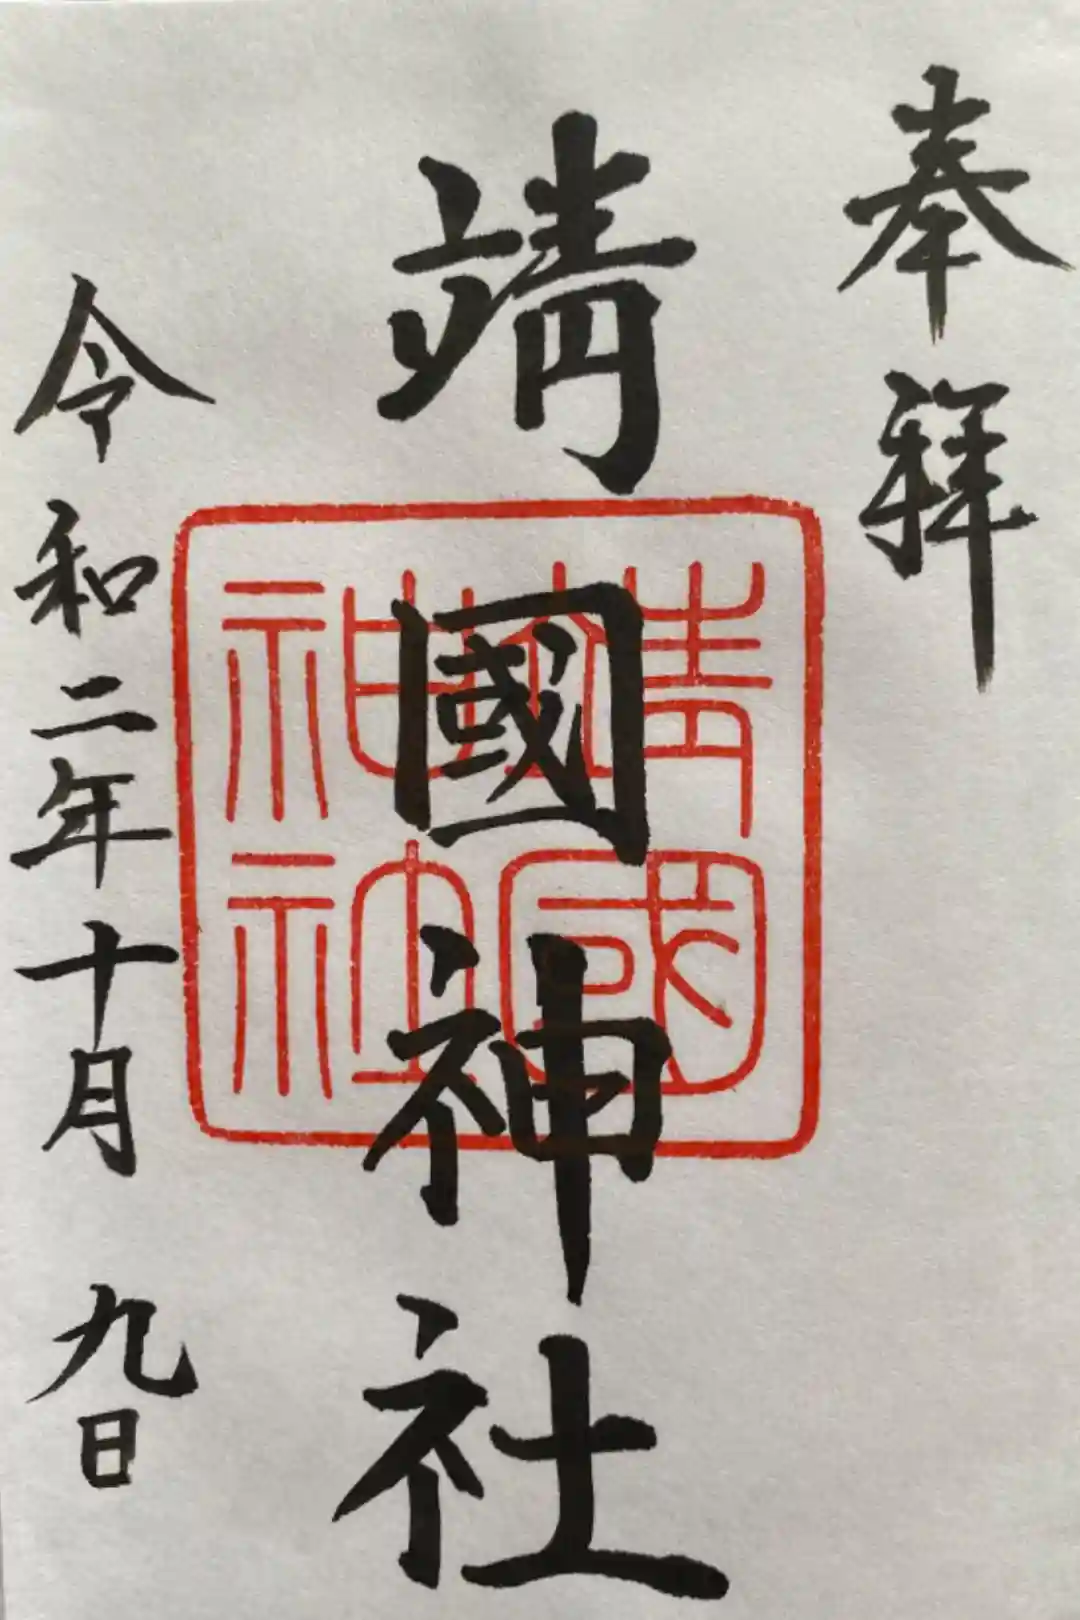 奉拝
靖國神社
靖國
神社
令和二年十月九日